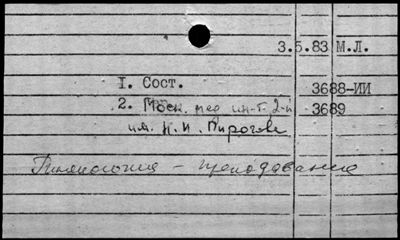 3.5.83 М.Л.
I. Сост. 3688-ИИ
2. Моск. мед. ин-т, 2-й 3689
им. Н.И. Пирогова
– преподавание